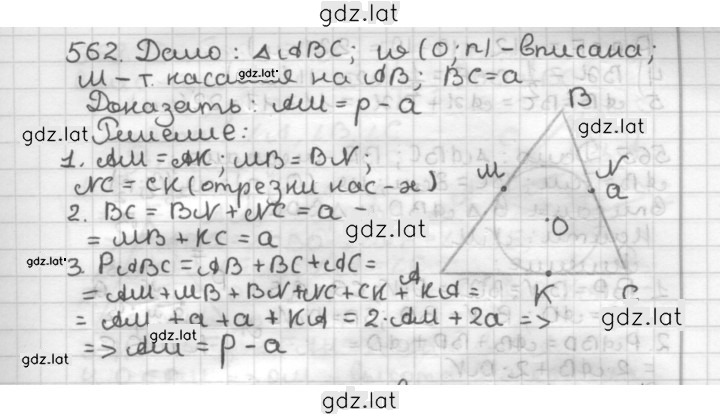 gdz.lat
562. Дано: △ABC; w (O; r) - вписана;
gdz.lat
M - т. касания на AB; BC = a
Доказать: AM = p - a
B
gdz.lat
gdz.lat
Решение:
1. AM = AK; MB = BN;
M
N
a
NC = CK (отрезки кас-х)
2. BC = BN + NC = a -
gdz.lat
O
= MB + KC = a
gdz.lat
3. PABC = AB + BC + AC =
A
K
C
= AM + MB + BN + NC + CK + KA =
= AM + a + a + KA = 2·AM + 2a =>
gdz.lat
gdz.lat
=> AM = p - a
gdz.lat
gdz.lat